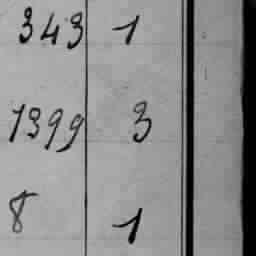 343 1
1399 3
8 1